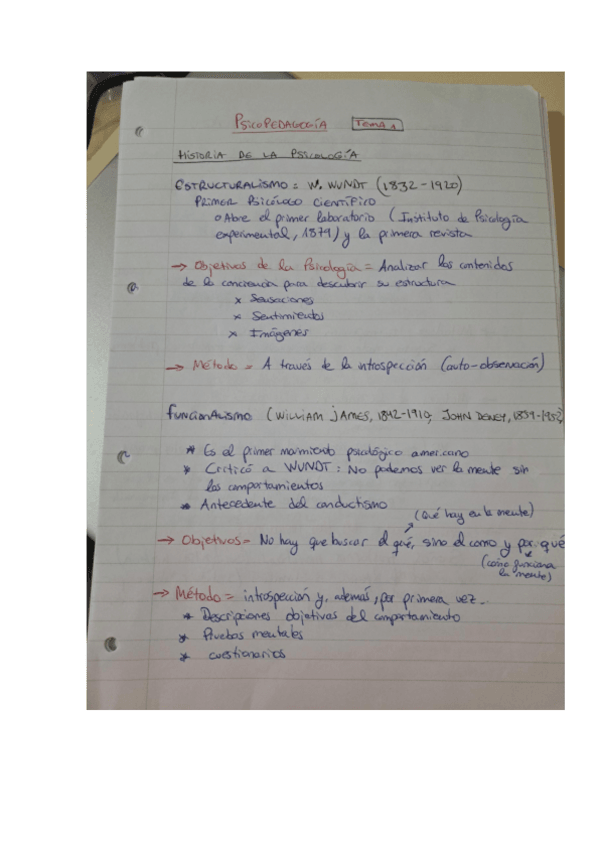 PSICOPEDAGOGÍA TEMA 1
HISTORIA DE LA PSICOLOGÍA
ESTRUCTURALISMO = W. WUNDT (1832-1920)
PRIMER PSICÓLOGO CIENTÍFICO
o Abre el primer laboratorio (Instituto de Psicología
experimental, 1879) y la primera revista
→ Objetivos de la Psicología = Analizar los contenidos
de la conciencia para descubrir su estructura
x Sensaciones
x Sentimientos
x Imágenes
→ Método = A través de la introspección (auto-observación)
FUNCIONALISMO (WILLIAM JAMES, 1842-1910, JOHN DEWEY, 1859-1952)
* Es el primer movimiento psicológico americano
* Criticó a WUNDT: No podemos ver la mente sin
los comportamientos
* Antecedente del conductismo
(Qué hay en la mente)
→ Objetivos = No hay que buscar el qué, sino el como y por qué
(como funciona
la mente)
→ Método = introspección y, además, por primera vez...
* Descripciones objetivas del comportamiento
* Pruebas mentales
* cuestionarios